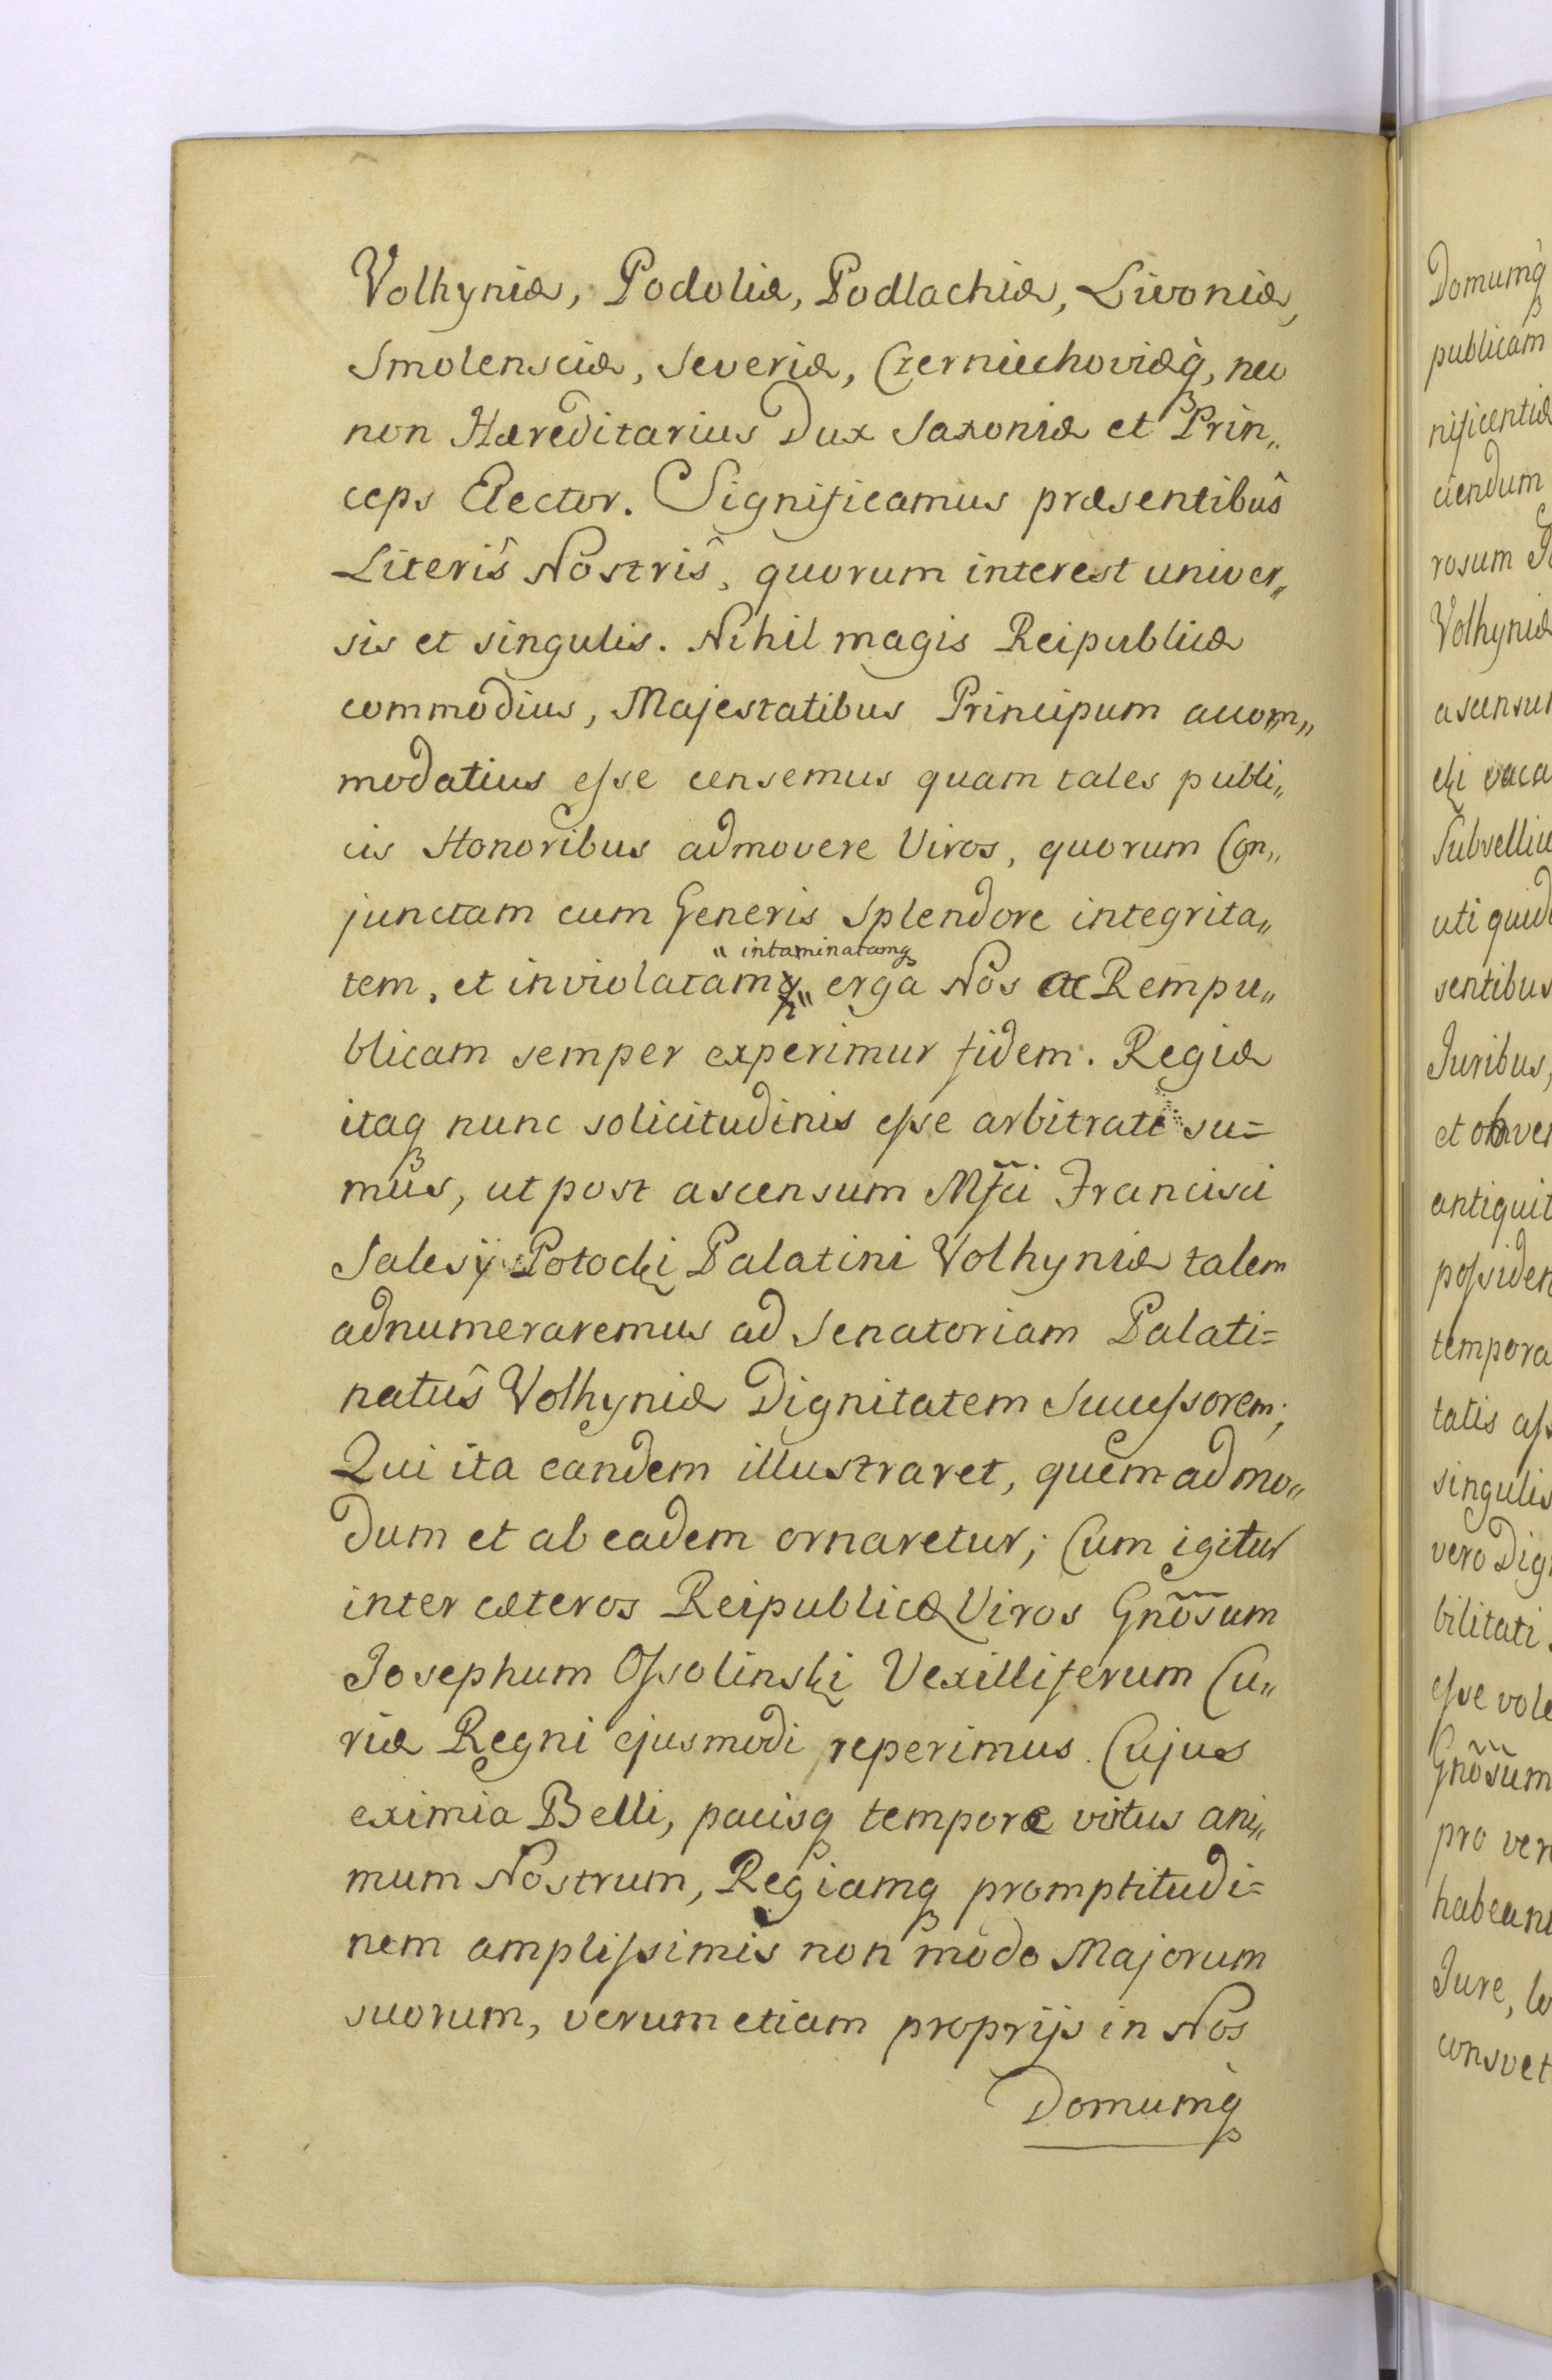 Volhyniæ, Podoliæ, Podlachiæ, Livoniæ,
Smolensciæ, Severiæ, Czerniechoviæq́, nec
non Hæreditarius Dux Saxoniæ et Prin„
ceps Elector. Significamus præsentibûs
Literîs Nostrîs, quorum interest univer„
sis et singulis. Nihil magis Reipublicæ
commodius, Majestatibus Principum accom„
modatius eſse censemus quam tales publi„
cis Honoribus admovere Viros, quorum Con„
junctam cum Generis Splendore integrita„
“ intaminatamq
tem, et inviolatamq„ erga Nos ac Rempu„
blicam semper experimur fidem. Regiæ
itaq nunc solicitudinis eſse arbitrati su=
mus, ut post ascensum Mf̃ci Francisci
Salesÿ Potocki Palatini Volhyniæ talem
adnumeraremus ad Senatoriam Palati=
natûs Volhyniæ Dignitatem Succeſsorem;
Qui ita eandem illustraret, quemadmo„
dum et ab eadem ornaretur; Cum igitur
inter cæteros Reipublicæ Viros Gñosum
Josephum Oſsolinski Vexilliferum Cu„
riæ Regni ejusmodi reperimus. Cujus
eximia Belli, pacisq tempore virtus ani„
mum Nostrum, Regiamq promptitudi=
nem ampliſsimis non modo Majorum
suorum, verum etiam proprijs in Nos
Domumq́
Domumq́
publicam
nificentiæ
ciendum
rosum
Volhyniæ
ascensu
cki vaca
Subselliu
uti quid
sentibus
Juribus,
et
antiquit
poſsiden
tempora
tatis aſs
singulis
vero Dig
bilitati
eſse vole
Gñosum
pro ver
habeant
Jure, le
consvet